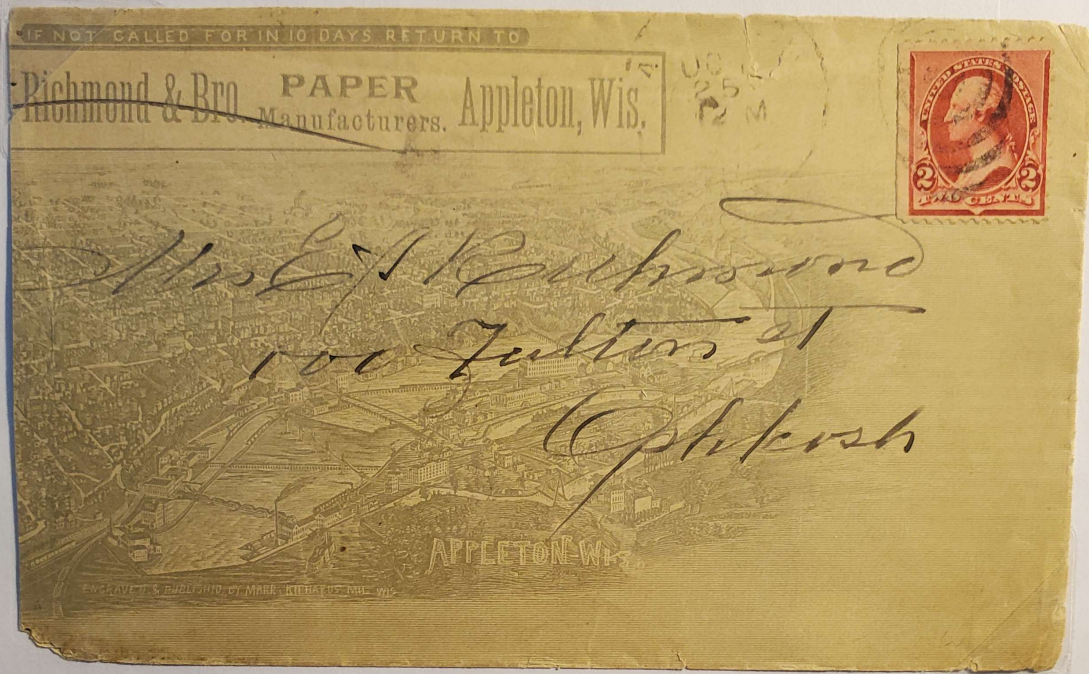 IF NOT CALLED FOR IN 10 DAYS RETURN TO
Richmond & Bro. PAPER Manufacturers. Appleton, Wis.
UNITED STATES POSTAGE
2 2
TWO CENTS
Mrs E A Richmond
100 Fulton st
Oshkosh
APPLETON-WIS.
ENGRAVED & PUBLISHED BY MARR & RICHARDS MIL. WIS